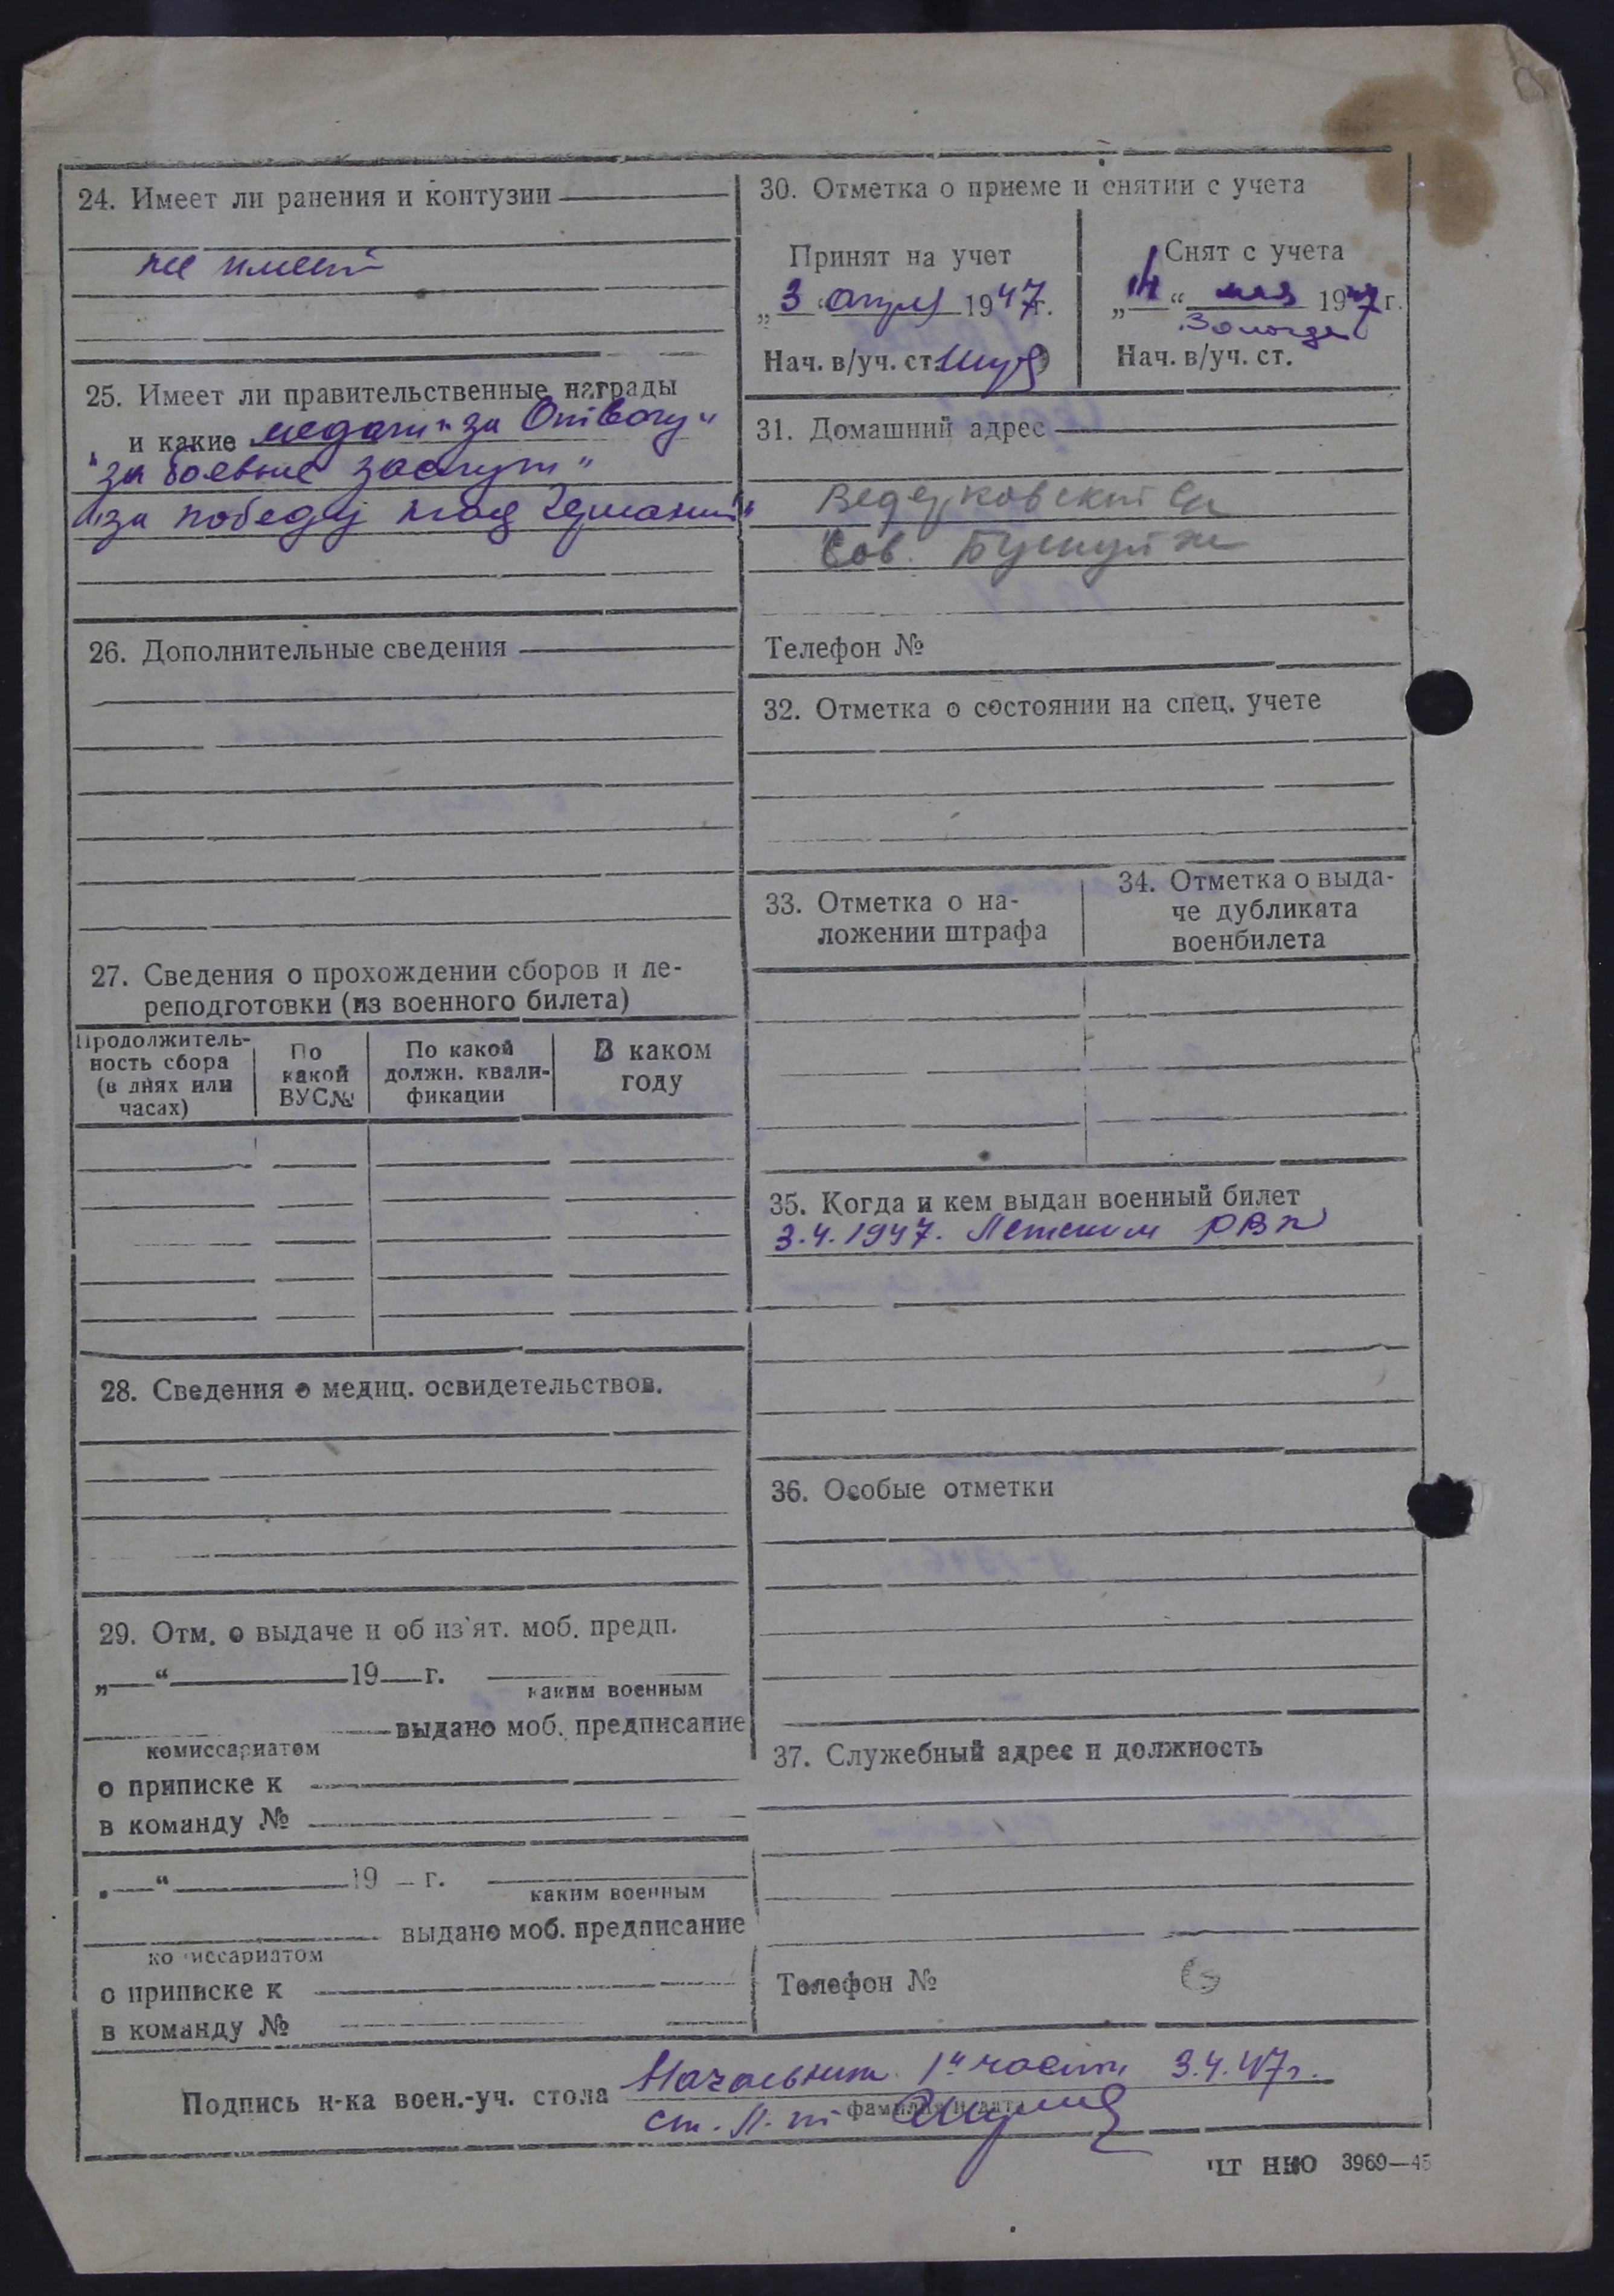 24. Имеет ли ранения и контузии
не имеет
25. Имеет ли правительственные награды
и какие медали "за Отвагу"
"за боевые заслуги"
"за победу над Германией"
26. Дополнительные сведения
27. Сведения о прохождении сборов и пе-
реподготовки (из военного билета)
Продолжитель-
ность сбора
(в днях или
часах)
По
какой
ВУС№
По какой
должн. квали-
фикации
В каком
году
28. Сведения о медиц. освидетельствов.
29. Отм. о выдаче и об из'ят. моб. предп.
„ “ 19 г.
каким военным
выдано моб. предписание
комиссариатом
о приписке к
в команду №
„ “ 19 г.
каким военным
выдано моб. предписание
комиссариатом
о приписке к
в команду №
30. Отметка о приеме и снятии с учета
Принят на учет
„3“ апреля 1947г.
Нач. в/уч. ст.
Снят с учета
„14“ мая 1947г.
Вологда
Нач. в/уч. ст.
31. Домашний адрес
Сов.
Телефон №
32. Отметка о состоянии на спец. учете
33. Отметка о на-
ложении штрафа
34. Отметка о выда-
че дубликата
военбилета
35. Когда и кем выдан военный билет
3.4.1947. Летским РВК
36. Особые отметки
37. Служебный адрес и должность
Телефон №
Подпись н-ка воен.-уч. стола Начальник 1й части 3.4.47г.
фамилия и дата
ст. л-т
ЦТ НКО 3969—45